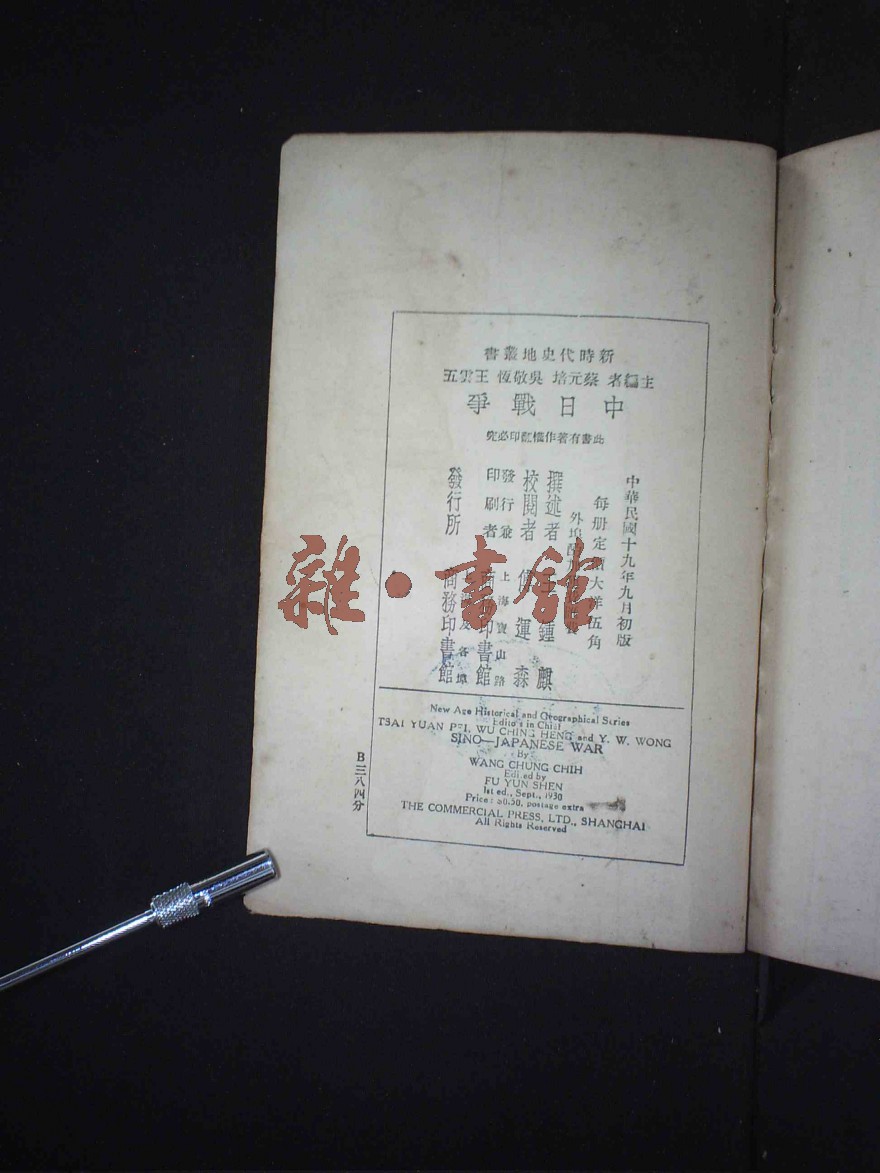 新時代史地叢書
主編者 蔡元培 吳敬恆 王雲五
中日戰爭
此書有著作權翻印必究
中華民國十九年九月初版
每册定價大洋五角
外埠
撰述者 王鍾麒
校閱者 傅運森
發行兼印刷者 上海寶山路 商務印書館
發行所 上海及各埠 商務印書館
雜·書館
New Age Historical and Geographical Series
Editors in Chief
TSAI YUAN PEI, WU CHING HENG and Y. W. WONG
SINO—JAPANESE WAR
By
WANG CHUNG CHIH
Edited by
FU YUN SHEN
1st ed., Sept., 1930
Price: $0.50, postage extra
THE COMMERCIAL PRESS, LTD., SHANGHAI
All Rights Reserved
B三八四分